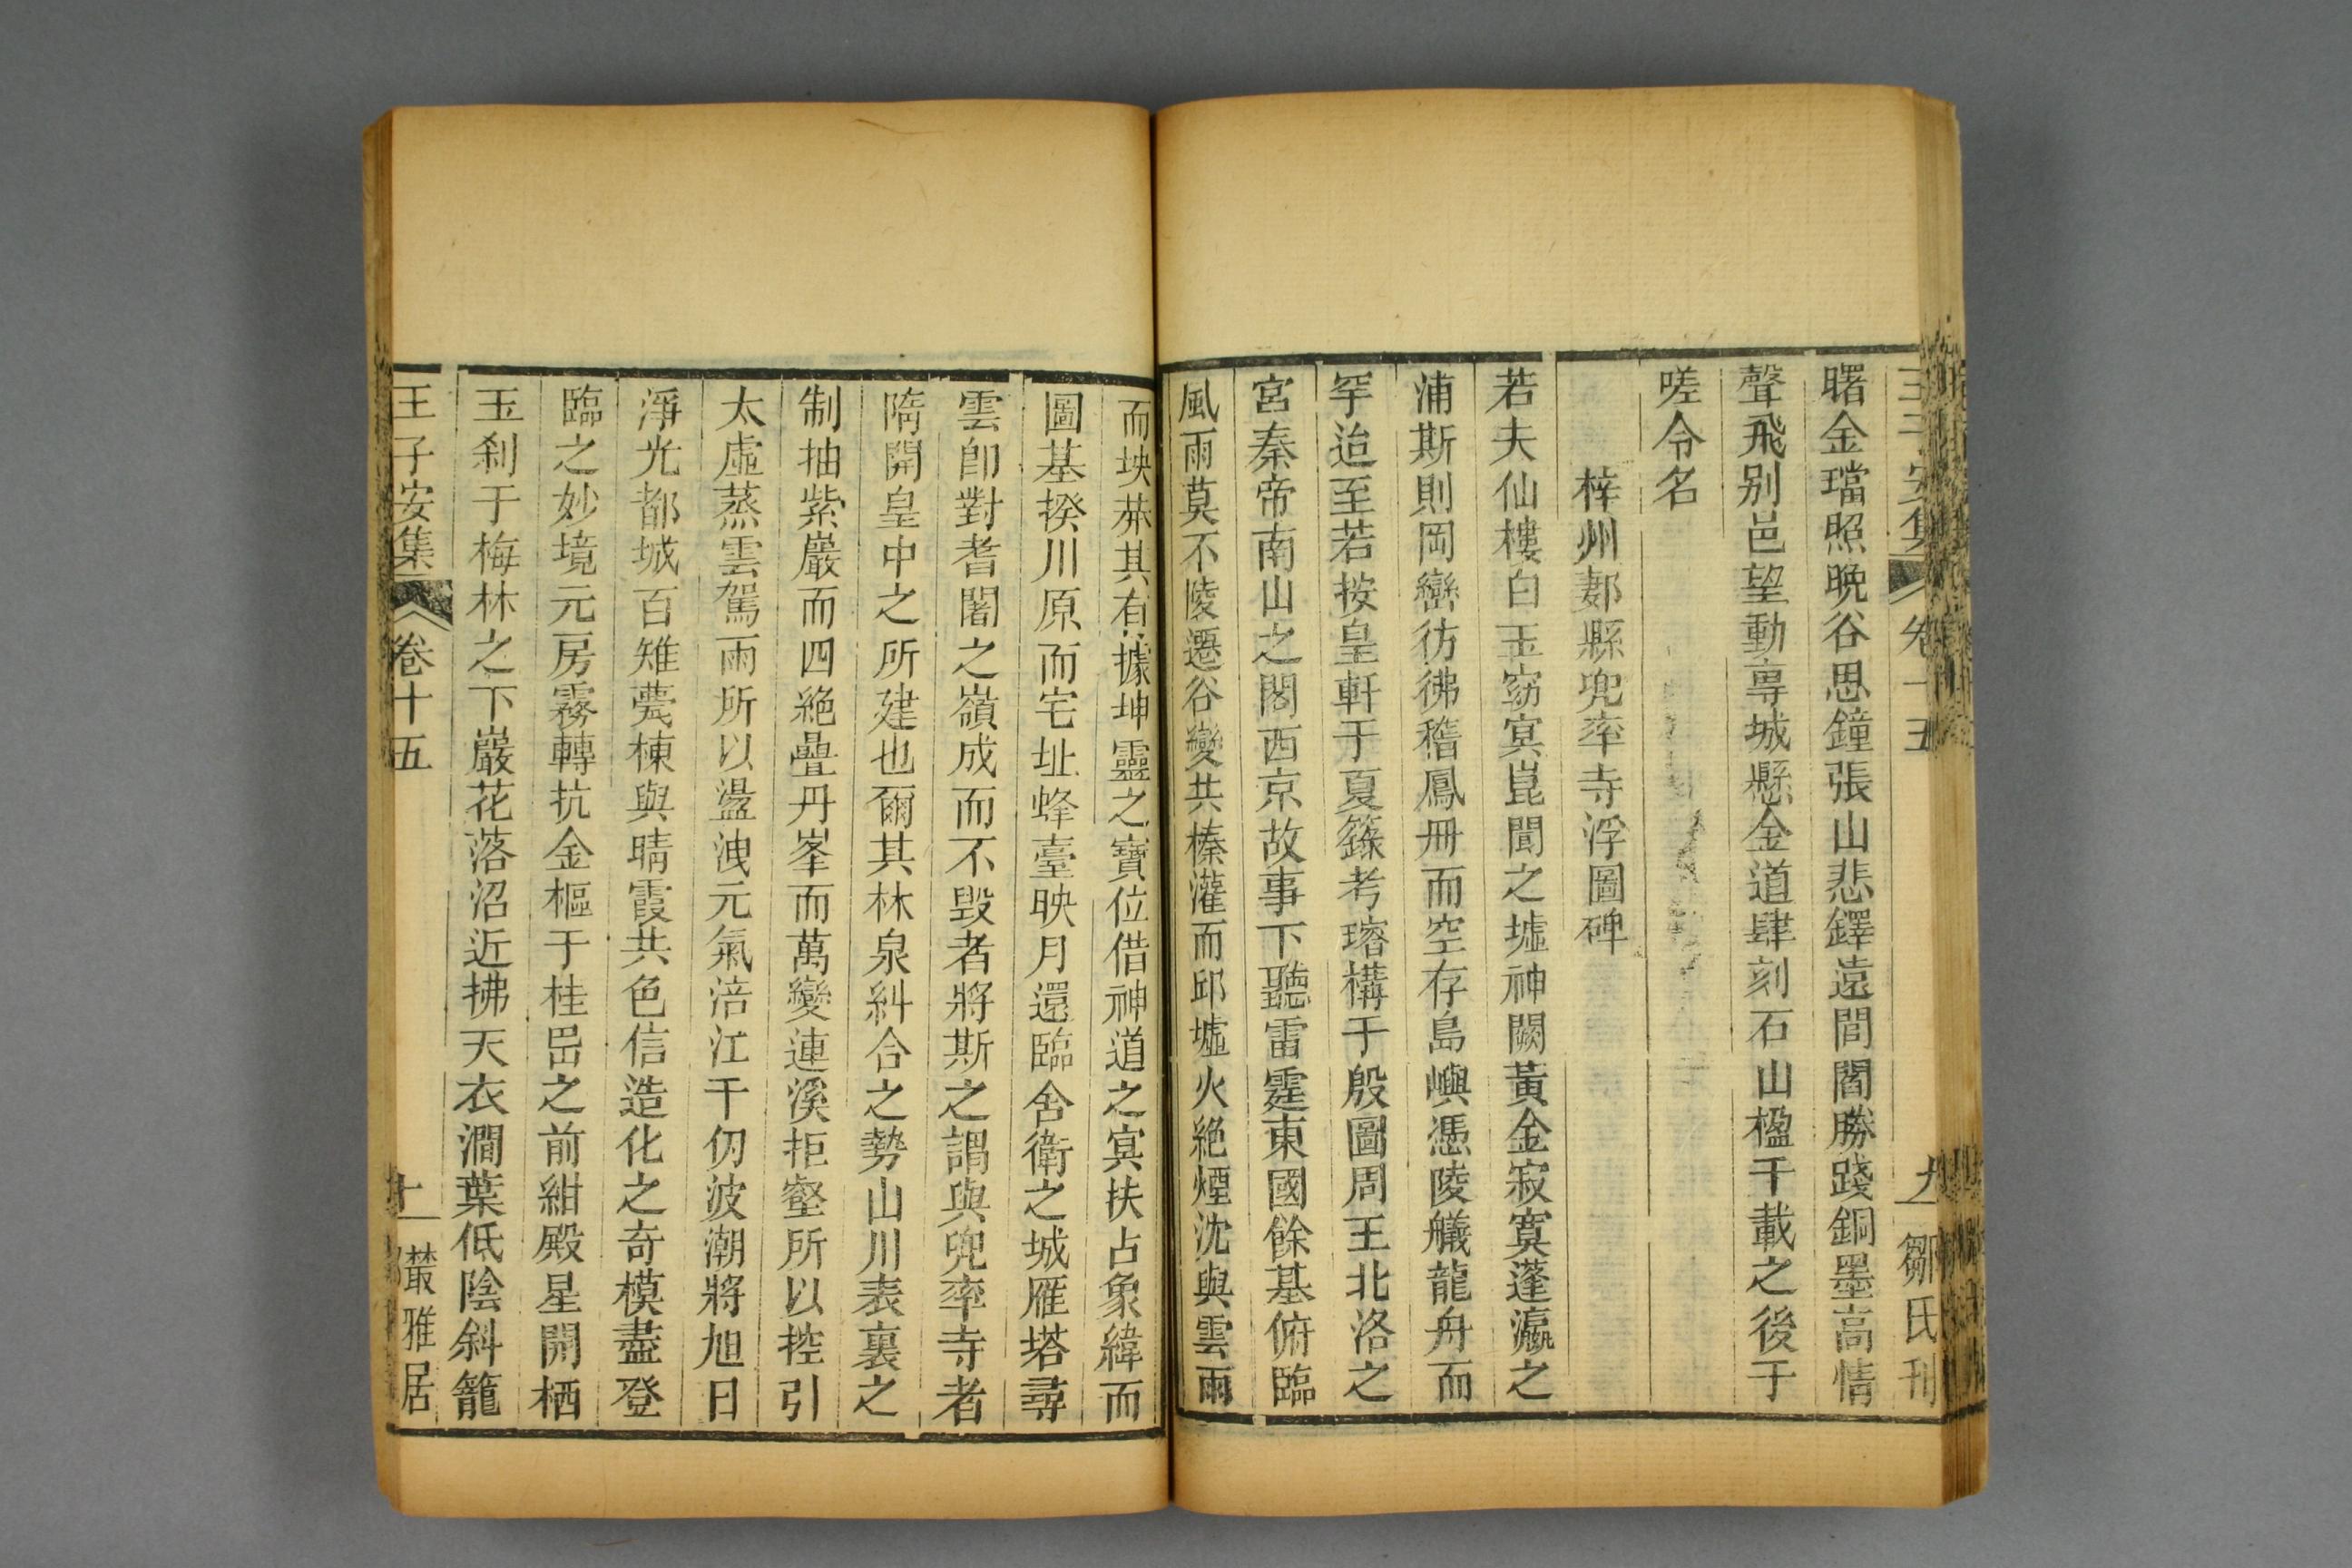 王子安集 卷十五 九 鄒氏刊
曙金璫照晩谷思鐘張山悲鐸遠閭閻勝踐銅墨高情
聲飛别邑望動專城懸金道肆刻石山楹千載之後于
嗟令名
梓州郪縣兜率寺浮圖碑
若夫仙樓白玉窈寞崑閬之墟神闕黃金寂寞蓬瀛之
浦斯則岡巒彷彿稽鳳冊而空存島嶼憑陵艤龍舟而
罕迨至若按皇軒于夏籙考瑤構于殷圖周王北洛之
宮秦帝南山之閣西京故事下聽雷霆東國餘基俯臨
風雨莫不陵遷谷變共榛灌而邱墟火絶煙沈與雲雨
而坱莽其有據坤靈之寶位借神道之冥扶占象緯而
圖基揆川原而宅址蜂臺映月還臨舍衛之城雁塔尋
雲卽對耆闍之嶺成而不毀者將斯之謂與兜率寺者
隋開皇中之所建也爾其林泉糾合之勢山川表裏之
制抽紫巖而四絶疊丹峯而萬變連溪拒壑所以控引
太虛蒸雲駕雨所以盪洩元氣涪江干仞波潮將旭日
淨光都城百雉甍棟與晴霞共色信造化之奇模盡登
臨之妙境元房霧轉抗金樞于桂嵒之前紺殿星開栖
玉刹于梅林之下巖花落沼近拂天衣澗葉低陰斜籠
王子安集 卷十五 十 叢雅居